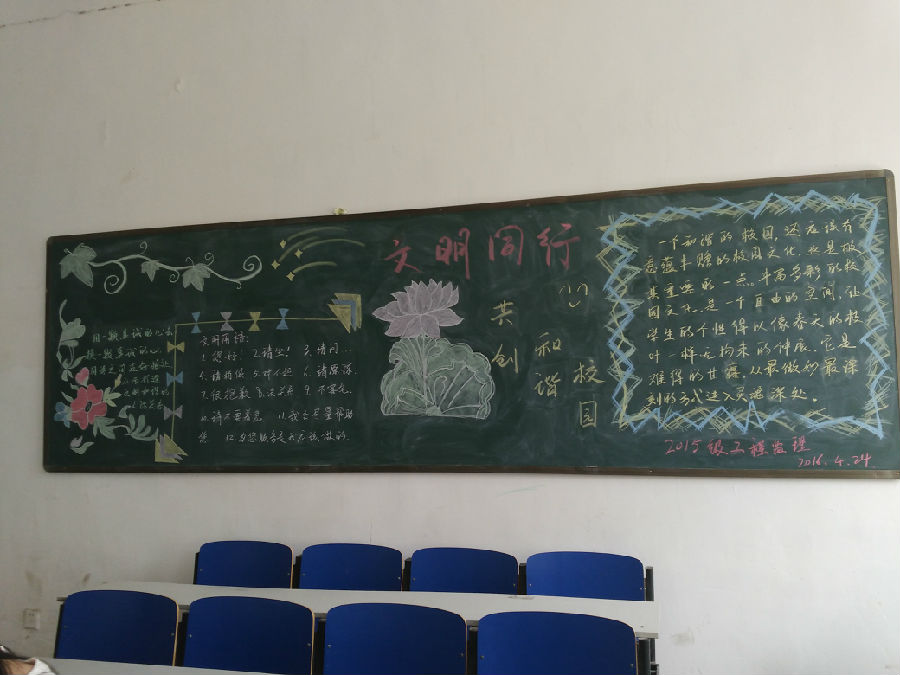 文明同行
共创
和谐
校园
用一颗真诚的心去
换一颗真诚的心
文明用语:
1.您好! 2.请坐! 3.请问…
4.请稍候 5.对不起 6.请原谅
7.很抱歉 8.没关系 9.不客气
10.请不要着急 11.我会尽量帮助
您 12.为您服务是我应该做的.
一个和谐的校园,这应该有
意蕴丰赡的校园文化,也是极
其重要的一点。丰富多彩的校
园文化,是一个自由的空间,让
学生的个性得以像春天的枝
叶一样无拘束的伸展。它是
难得的甘露,从最微妙最深
刻的方式进入灵魂深处。
2015级工程监理
2016.4.24